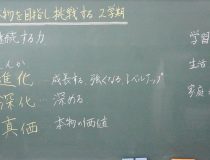 本物を目指し挑戦する 2学期
続する力
進化 … 成長する、強くなる、レベルアップ
深化 … 深める
真価 … 本物の価値
学習
生活
家庭